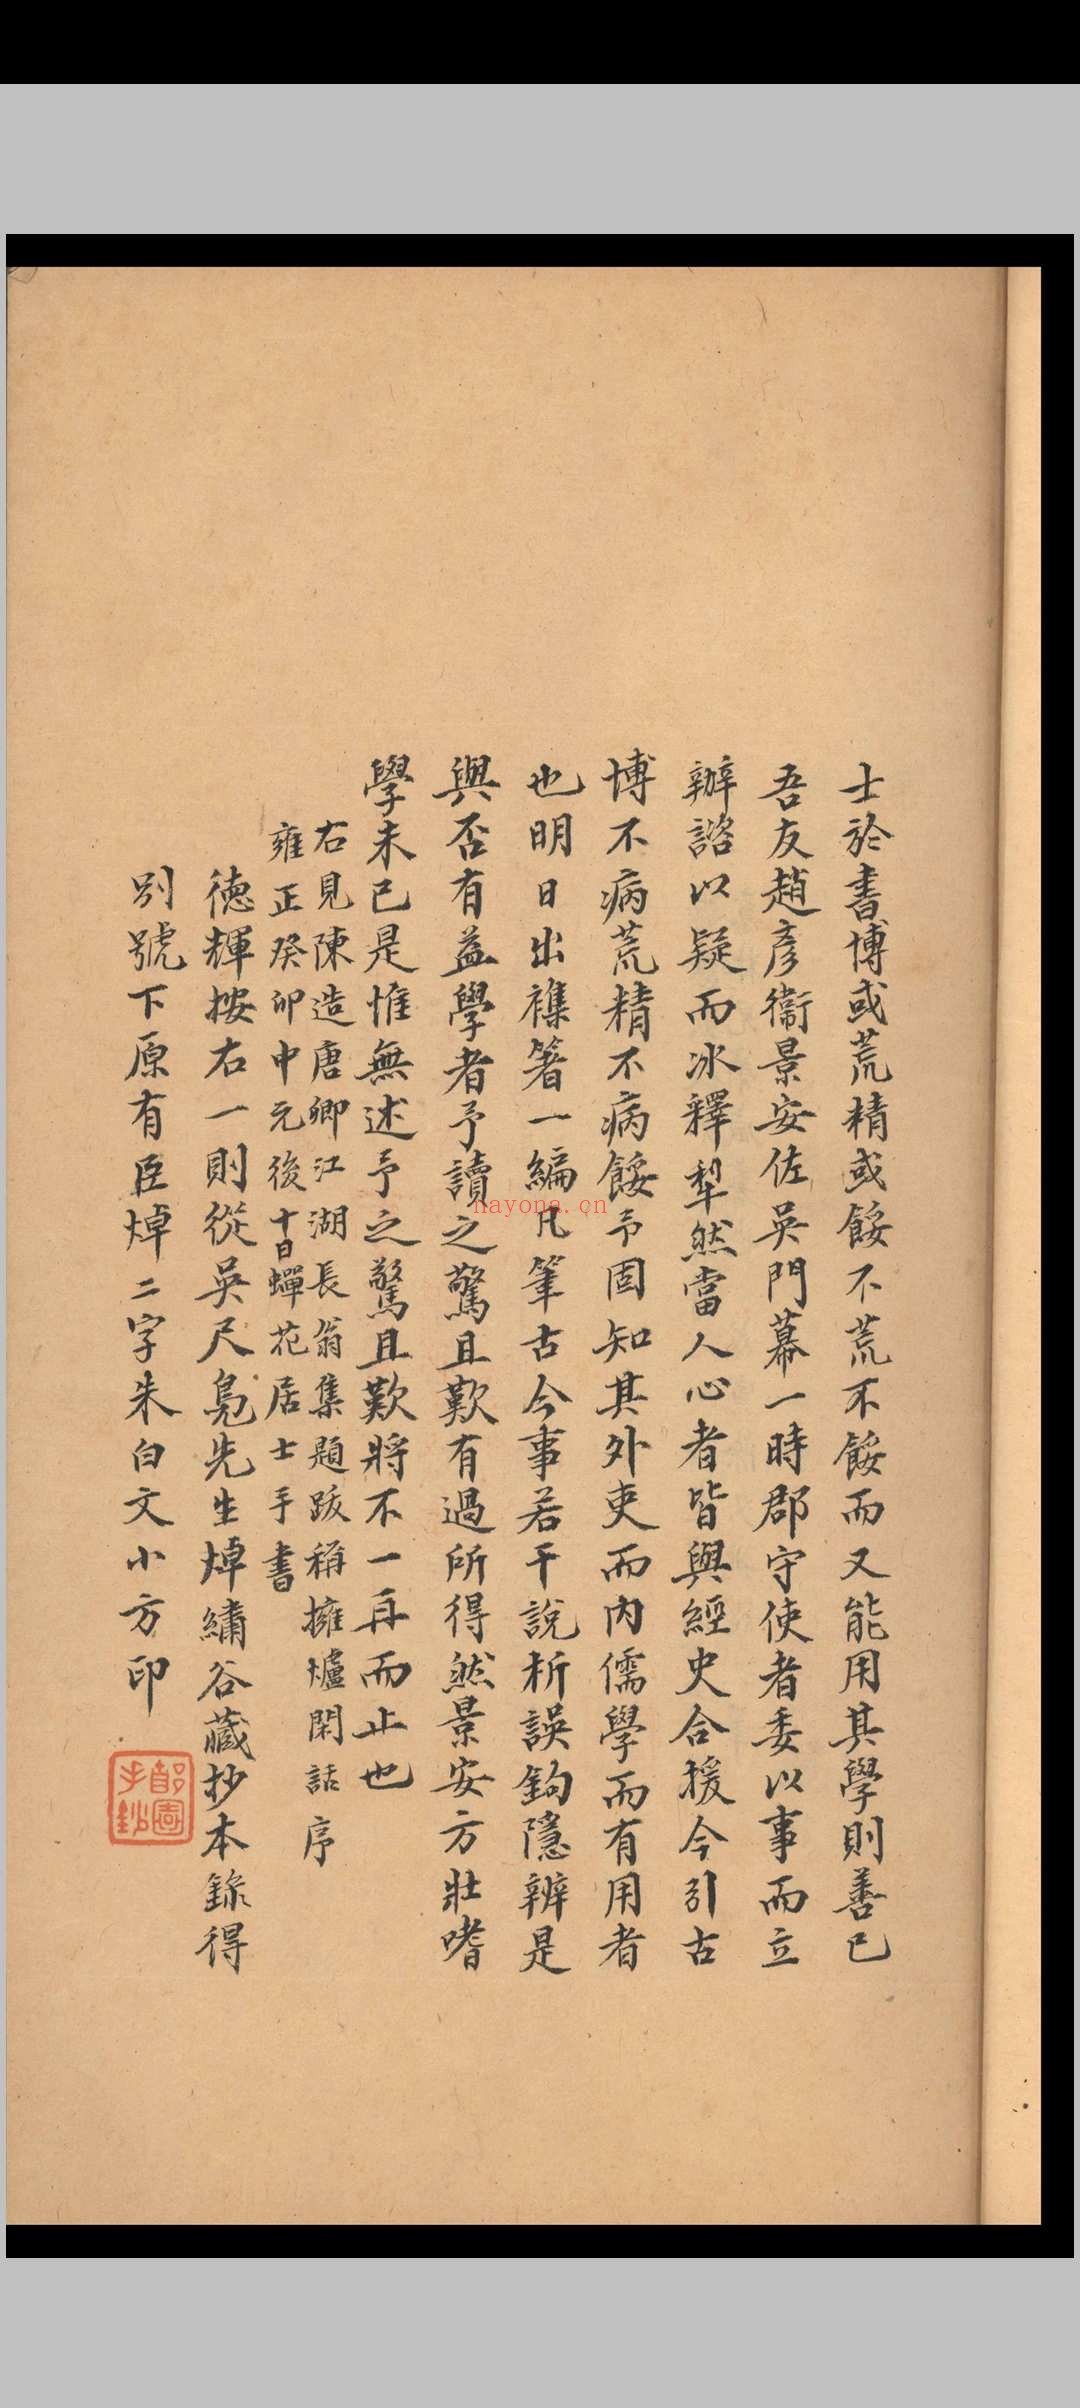 士於書博或荒精或餒不荒不餒而又能用其學則善已
吾友趙彥衞景安佐吳門幕一時郡守使者委以事而立
辦諮以疑而冰釋犁然當人心者皆與經史合援今引古
博不病荒精不病餒予固知其外吏而內儒學而有用者
也明日出襍箸一編凡筆古今事若干說析誤鉤隱辨是
與否有益學者予讀之驚且歎有過所得然景安方壯嗜
學未已是惟無述予之驚且歎將不一再而止也
右見陳造唐卿江湖長翁集題跋稱擁爐閑話序
雍正癸卯中元後十日蟬花居士手書
德輝按右一則從吳尺鳧先生焯繡谷藏抄本錄得
別號下原有臣焯二字朱白文小方印
郋園手鈔
nayona.cn